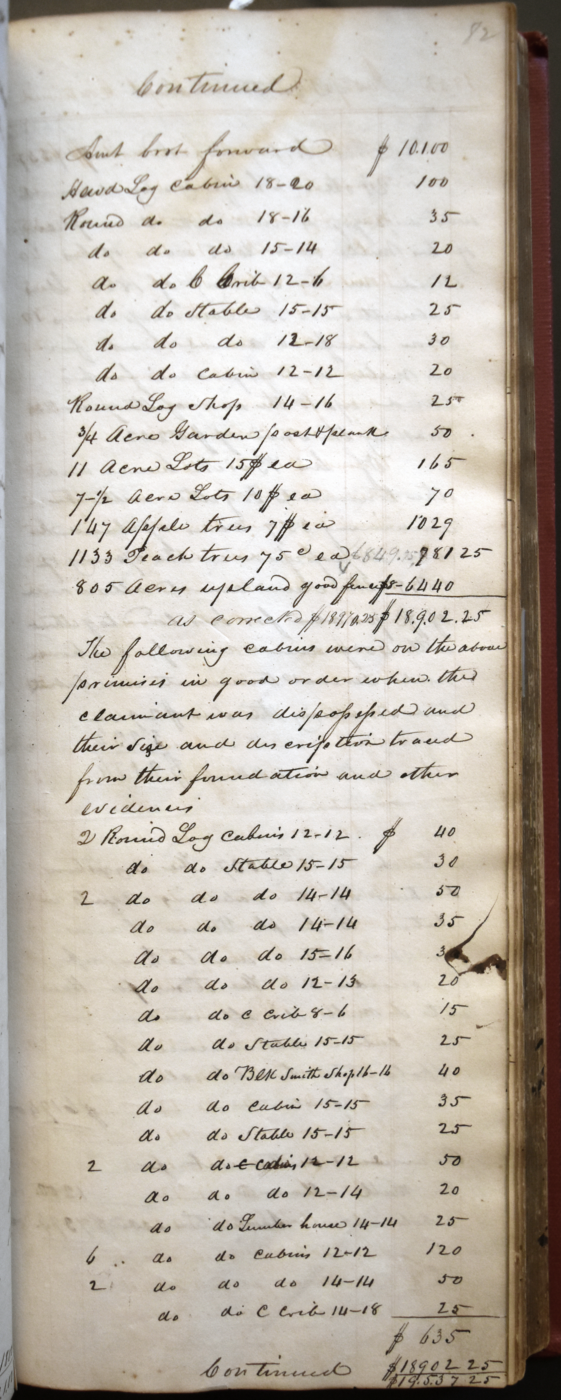 82
Continued
Amt brot forward $ 10.100
Hewd Log cabin 18-20 100
Round do do 18-16 35
do do do 15-14 20
do do C Crib 12-6 12
do do Stable 15-15 25
do do do 12-18 30
do do cabin 12-12 20
Round Log Shop 14-16 25
3/4 Acre Garden post & plank 50
11 Acre Lots 15$ ea 165
7-1/2 Acre Lots 10$ ea 70
147 Apple trees 7$ ea 1029
1133 Peach trees 75c ea 781 25
805 Acres upland good fence $8-6440
as corrected $18970.25 $18,902.25
The following cabins were on the above
primises in good order when the
claimant was dispossessed and
their size and discription traced
from their foundation and other
evidences
2 Round Log cabins 12-12 $ 40
do do Stable 15-15 30
2 do do do 14-14 50
do do do 14-14 35
do do do 15-16 3
do do do 12-13 20
do do C Crib 8-6 15
do do Stable 15-15 25
do do Blk Smith Shop 16-16 40
do do cabin 15-15 35
do do Stable 15-15 25
2 do do cabins 12-12 50
do do do 12-14 20
do do Lumber house 14-14 25
6 do do cabins 12-12 120
2 do do do 14-14 50
do do C Crib 14-18 25
$ 635
Continued $18902 25
$19.537 25